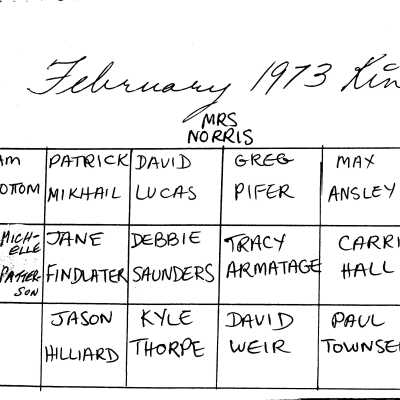 February 1973 Kin
MRS
NORRIS
AM PATRICK DAVID GREG MAX
OTTOM MIKHAIL LUCAS PIFER ANSLEY
MICH- JANE DEBBIE TRACY CARRI
ELLE
PATTER FINDLATER SAUNDERS ARMATAGE HALL
SON
JASON KYLE DAVID PAUL
HILLIARD THORPE WEIR TOWNSE